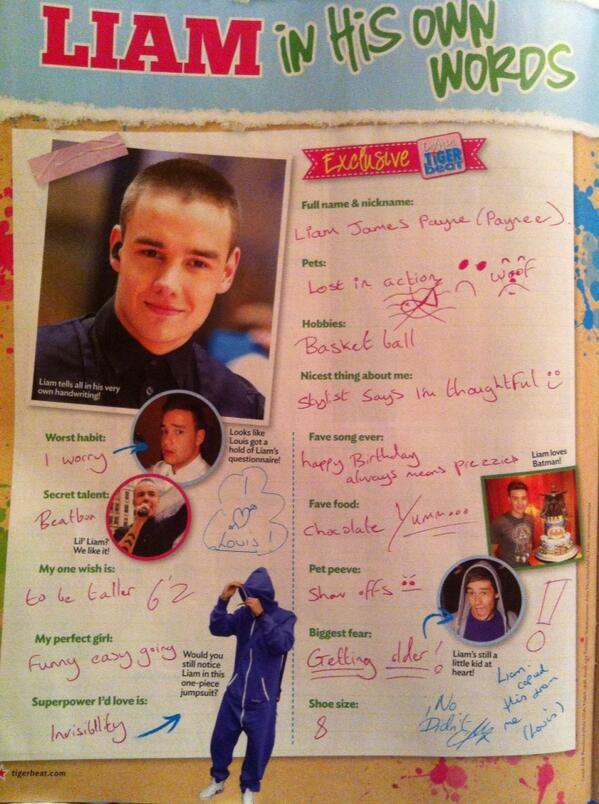 LIAM IN HIS OWN
WORDS
Exclusive
TIGER
BEAT
Full name & nickname:
Liam James Payne (Paynee).
Pets:
Lost in action
woof
Hobbies:
Basket ball
Nicest thing about me:
Stylist says I'm thoughtful
Liam tells all in his very
own handwriting!
Worst habit:
I worry
Looks like
Louis got a
hold of Liam's
questionnaire!
Secret talent:
Beatbox
Lil' Liam?
We like it!
I
Louis!
My one wish is:
to be taller 6'2
My perfect girl:
Funny easy going
Would you
still notice
Liam in this
one-piece
jumpsuit?
Superpower I'd love is:
Invisiblility
Fave song ever:
happy Birthday
always means prezzies
Liam loves
Batman!
Fave food:
Chocolate Yummooo
Pet peeve:
Show offs
Biggest fear:
Getting older!
Liam's still a
little kid at
heart!
Shoe size:
8
No
Didn't
Liam.
copied
this from
me
(Louis)
tigerbeat.com